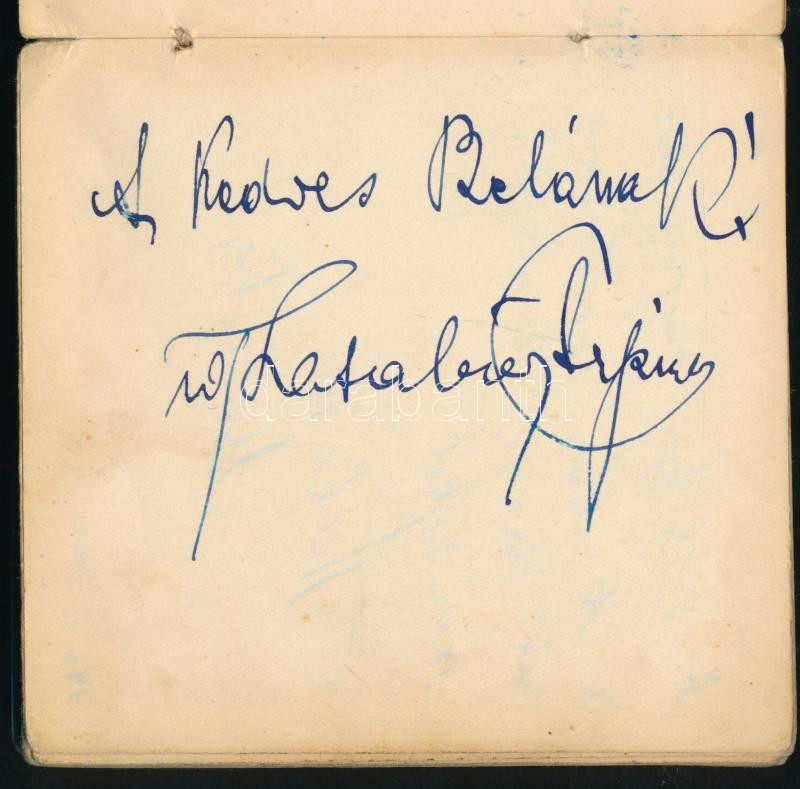 A Kedves Belának!
ifj Latabár Árpád
darabanth